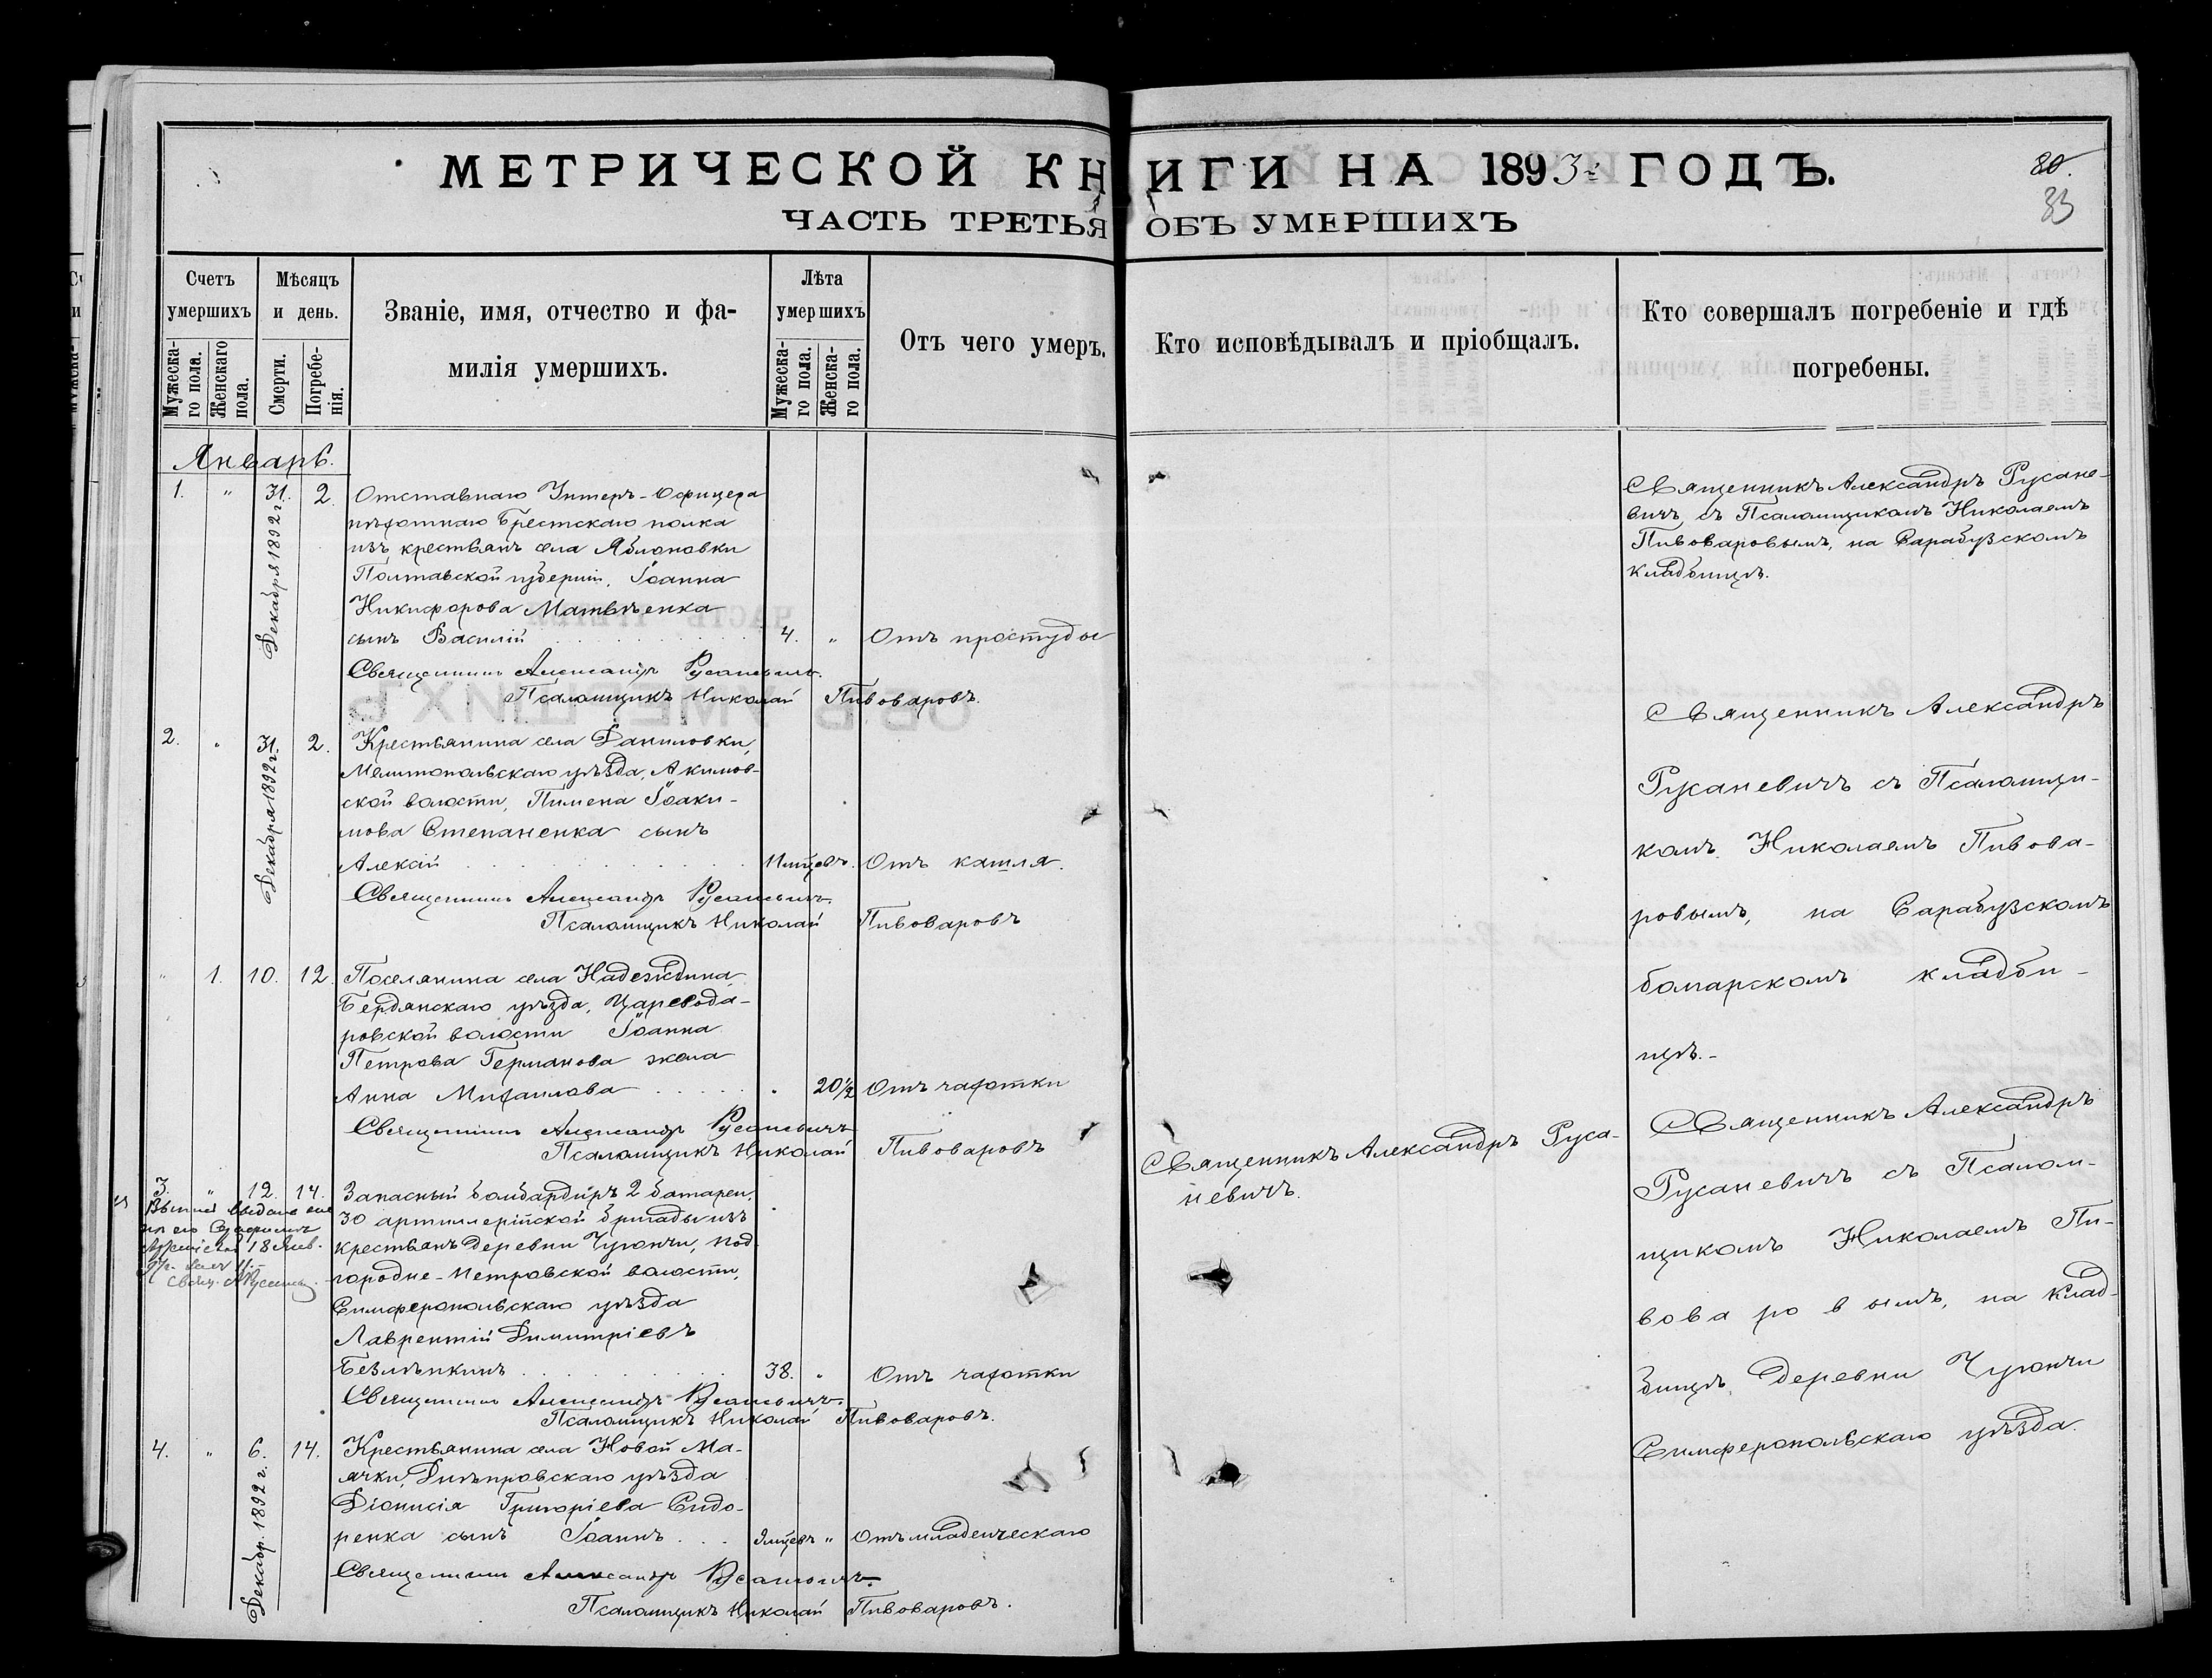 МЕТРИЧЕСКОЙ КНИГИ НА 1893 ГОДЪ.
80
33
ЧАСТЬ ТРЕТЬЯ ОБЪ УМЕРШИХЪ
Счетъ умершихъ
Мужеска-го пола.
Женскаго пола.
Мѣсяцъ и день.
Смерти.
Погребе-нія.
Званіе, имя, отчество и фа-
милія умершихъ.
Лѣта умершихъ
Мужеска-го пола.
Женска-го пола.
Отъ чего умеръ.
Кто исповѣдывалъ и пріобщалъ.
Кто совершалъ погребеніе и гдѣ
погребены.
Январь.
1. " 31. Декабря 1892 г. 2. Отставнаго Унтеръ-Офицера
пѣхотнаго Брестскаго полка
изъ крестьянъ села Яблоновки
Полтавской губерніи, Іоанна
Никифорова Матвѣенка
сынъ Василій 4. " Отъ простуды
Священникъ Александръ Русаневичъ.
Псаломщикъ Николай Пивоваровъ.
Священникъ Александръ Русане-
вичъ, съ Псаломщикомъ Николаемъ
Пивоваровымъ, на Сарабузскомъ
кладбищѣ.
2. " 31. Декабря 1892 г. 2. Крестьянина села Даниловки,
Мелитопольскаго уѣзда, Акимов-
ской волости, Пимена Іоаки-
мова Степаненка сынъ
Алексій Отъ кашля.
Священникъ Александръ Русаневичъ.
Псаломщикъ Николай Пивоваровъ
Священникъ Александръ
Русаневичъ съ Псаломщи-
комъ Николаемъ Пивова-
ровымъ, на Сарабузскомъ
болгарскомъ кладби-
щѣ.-
" 1. 10. 12. Поселянина села Надеждина,
Бердянскаго уѣзда, Царевода-
ровской волости Іоанна
Петрова Германова жена
Анна Михаилова " 20½ Отъ чахотки
Священникъ Александръ Русаневичъ
Псаломщикъ Николай Пивоваровъ
3. " 12. 14. Запасный бомбардиръ 2 батареи,
30 артиллерійской бригады изъ
крестьянъ деревни Чуюнчи, под-
городне-Петровской волости,
Симферопольскаго уѣзда
Лаврентій Димитріевъ
Безлѣпкинъ 38. " Отъ чахотки
Священникъ Александръ Русаневичъ.
Псаломщикъ Николай Пивоваровъ.
Священникъ Александръ Руса-
невичъ.
Священникъ Александръ
Русаневичъ съ Псалом-
щикомъ Николаемъ Пи-
воваровымъ, на клад-
бищѣ деревни Чуюнчи
Симферопольскаго уѣзда.
4. " 6. Декабр. 1892 г. 14. Крестьянина села Новой Ма-
ячки, Днѣпровскаго уѣзда
Діонисія Григоріева Сидо-
ренка сынъ Іоаннъ " Отъ младенческаго
Священникъ Александръ Русаневичъ.
Псаломщикъ Николай Пивоваровъ.